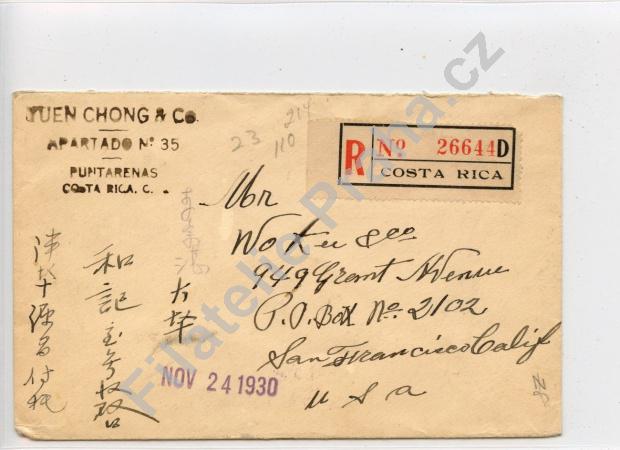 YUEN CHONG & Co.
APARTADO Nº 35
PUNTARENAS
COSTA RICA. C.
23
214
110
R Nº 26644 D
COSTA RICA
Mr
Wo Kee & Co
949 Grant Avenue
P.O. Box No. 2102
San Francisco Calif
U S a
大埠
和記宝号收啓
源昌付托
NOV 24 1930
Filatelie Praha.cz